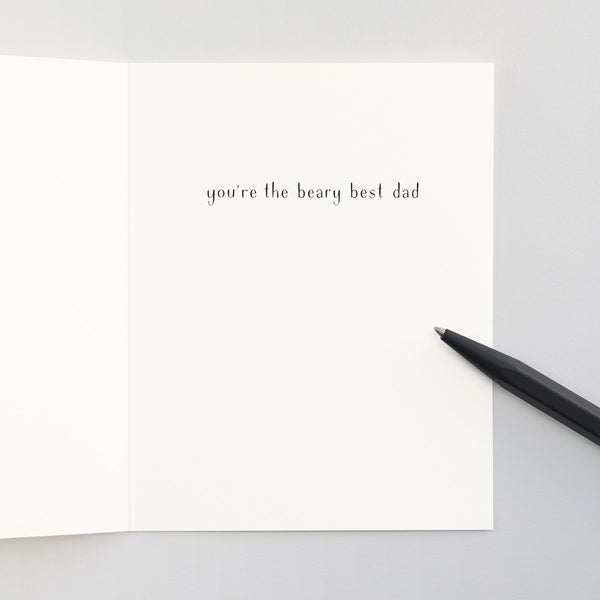 you're the beary best dad